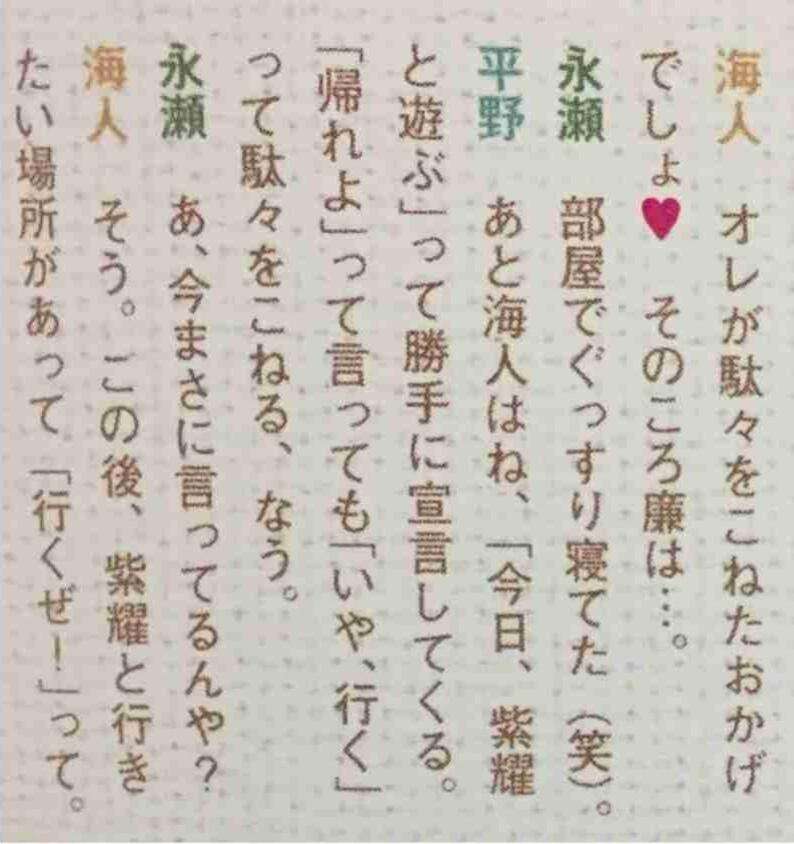 海人　オレが駄々をこねたおかげ
でしょ♥　そのころ廉は…。
永瀬　部屋でぐっすり寝てた（笑）。
平野　あと海人はね、「今日、紫耀
と遊ぶ」って勝手に宣言してくる。
「帰れよ」って言っても「いや、行く」
って駄々をこねる、なう。
永瀬　あ、今まさに言ってるんや？
海人　そう。この後、紫耀と行き
たい場所があって「行くぜ！」って。